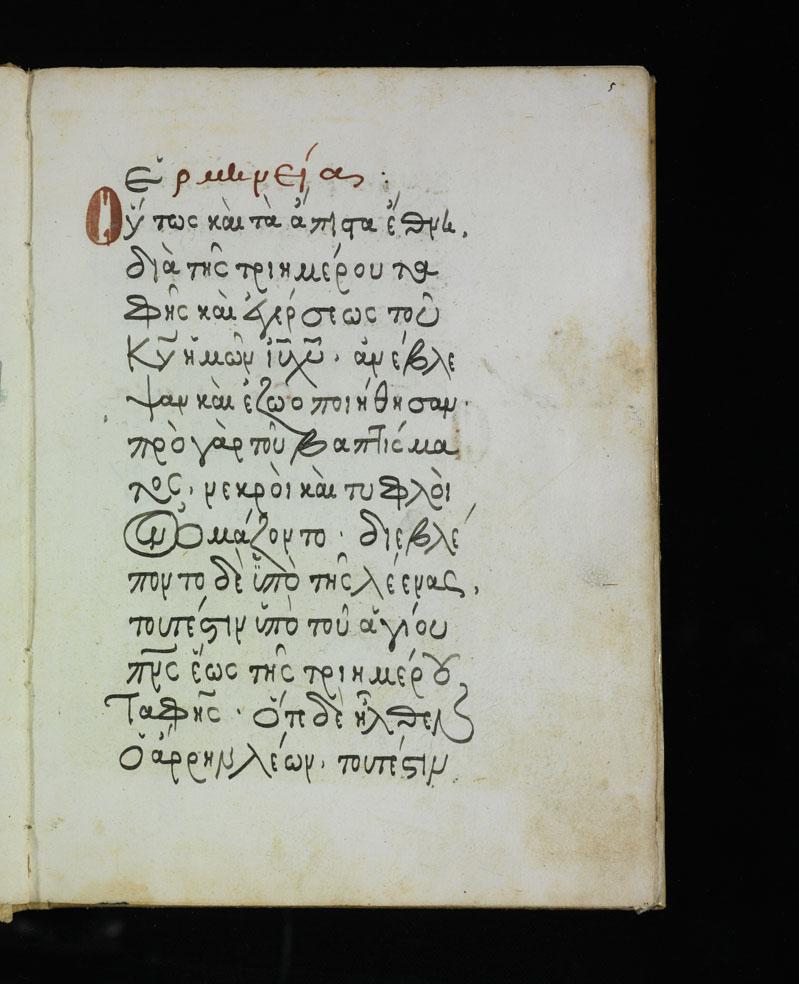 5
Ἑρμηνείας :
Οὕτως καὶ τὰ ἄπιστα ἔθνη,
διὰ τῆς τριημέρου τα
φῆς καὶ ἐγέρσεως τοῦ
Κῦ ἡμῶν ἰῦ χῦ · ἀνέβλε
ψαν καὶ ἐζωοποιήθησαν ·
πρὸ γὰρ τοῦ βαπτίσμα
τος, νεκρὸι καὶ τυφλὸι
ὠνομάζοντο · διεβλέ
ποντο δὲ ὑπὸ τῆς λέενας,
τουτέστιν ὑπὸ τοῦ ἁγίου
πνς ἕως τῆς τριημέρου
Ταφῆς · ὅτε δὲ ἦλθεν
ὁ ἄρρην λέων, τουτέστιν